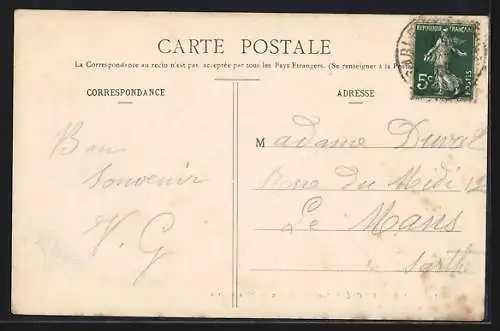 CARTE POSTALE
La Correspondance au recto n'est pas acceptée par tous les Pays Étrangers. (Se renseigner à la Poste
CORRESPONDANCE
ADRESSE
REPUBLIQUE FRANÇAISE
5c
POSTES
Bon
Souvenir
V. G
Madame Duval
Rue du Midi 12
Le Mans
Sarthe